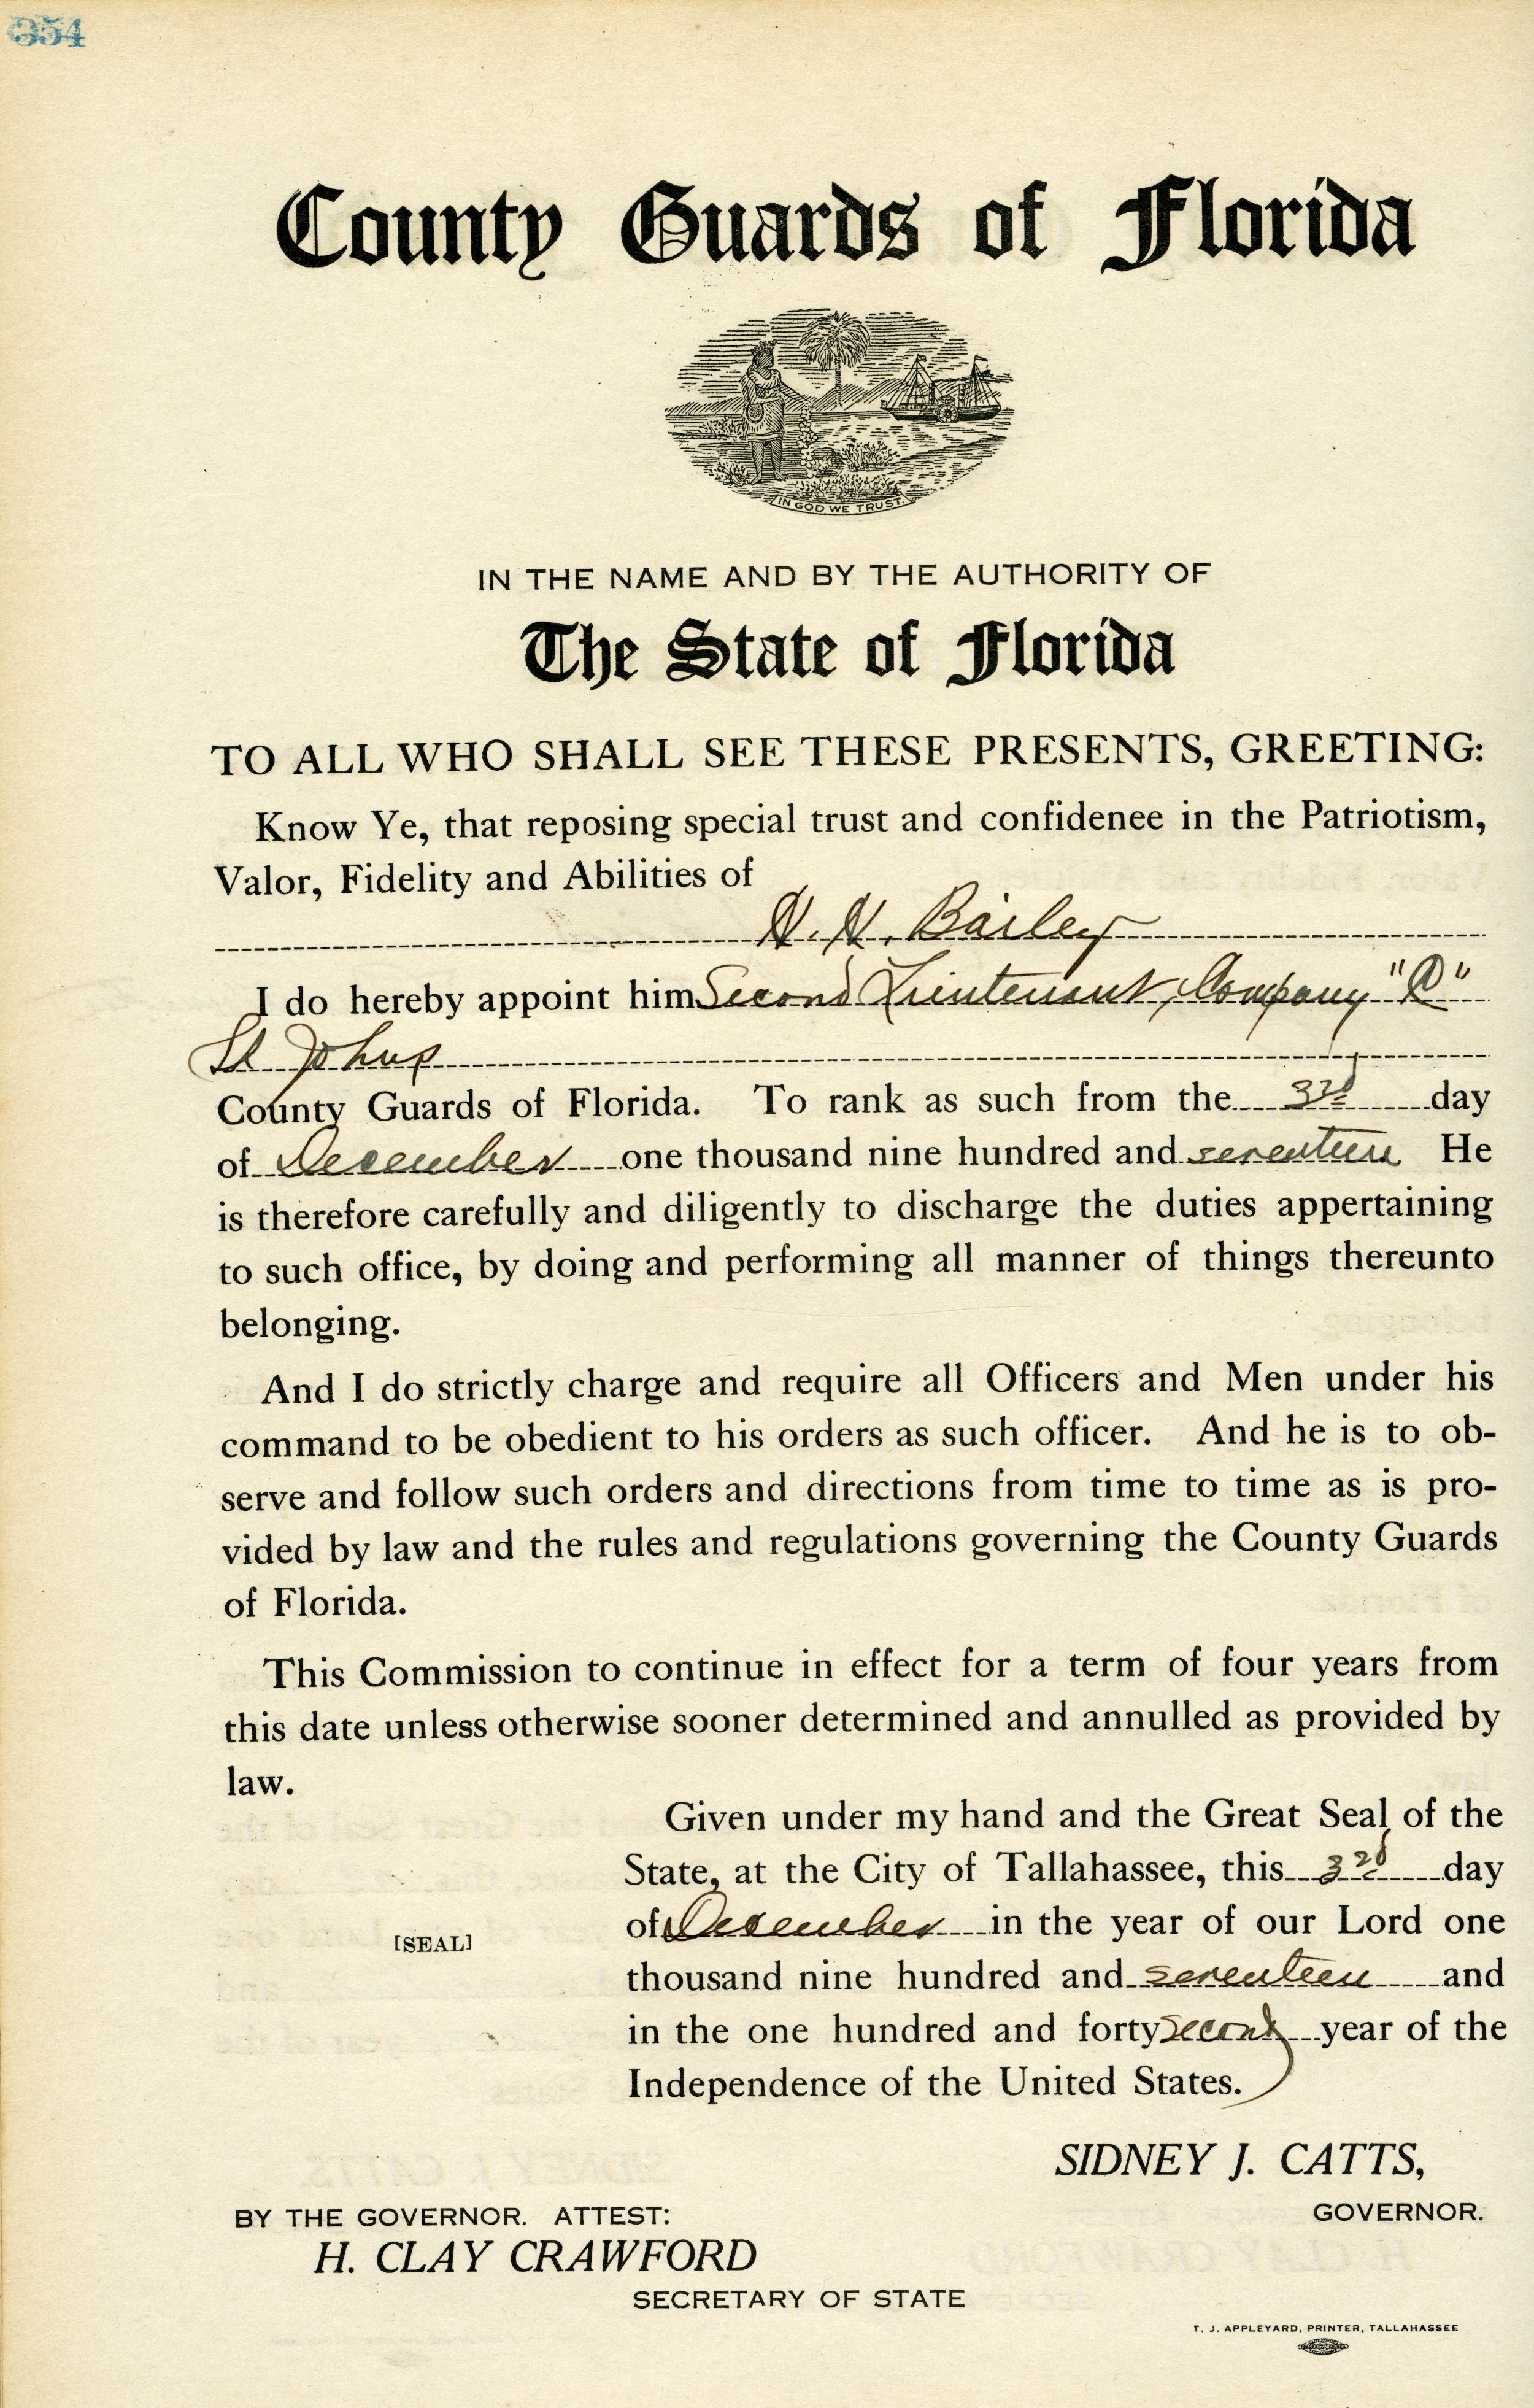 354
County Guards of Florida
IN GOD WE TRUST.
IN THE NAME AND BY THE AUTHORITY OF
The State of Florida
TO ALL WHO SHALL SEE THESE PRESENTS, GREETING:
Know Ye, that reposing special trust and confidenee in the Patriotism,
Valor, Fidelity and Abilities of
H. H. Bailey
I do hereby appoint him Second Lieutenant, Company
St Johns
County Guards of Florida. To rank as such from the 3rd day
of December one thousand nine hundred and seventeen He
is therefore carefully and diligently to discharge the duties appertaining
to such office, by doing and performing all manner of things thereunto
belonging.
And I do strictly charge and require all Officers and Men under his
command to be obedient to his orders as such officer. And he is to ob-
serve and follow such orders and directions from time to time as is pro-
vided by law and the rules and regulations governing the County Guards
of Florida.
This Commission to continue in effect for a term of four years from
this date unless otherwise sooner determined and annulled as provided by
law.
Given under my hand and the Great Seal of the
State, at the City of Tallahassee, this 3rd day
of December in the year of our Lord one
[SEAL]
thousand nine hundred and seventeen and
in the one hundred and forty second year of the
Independence of the United States.
SIDNEY J. CATTS,
GOVERNOR.
BY THE GOVERNOR. ATTEST:
H. CLAY CRAWFORD
SECRETARY OF STATE
T. J. APPLEYARD, PRINTER, TALLAHASSEE